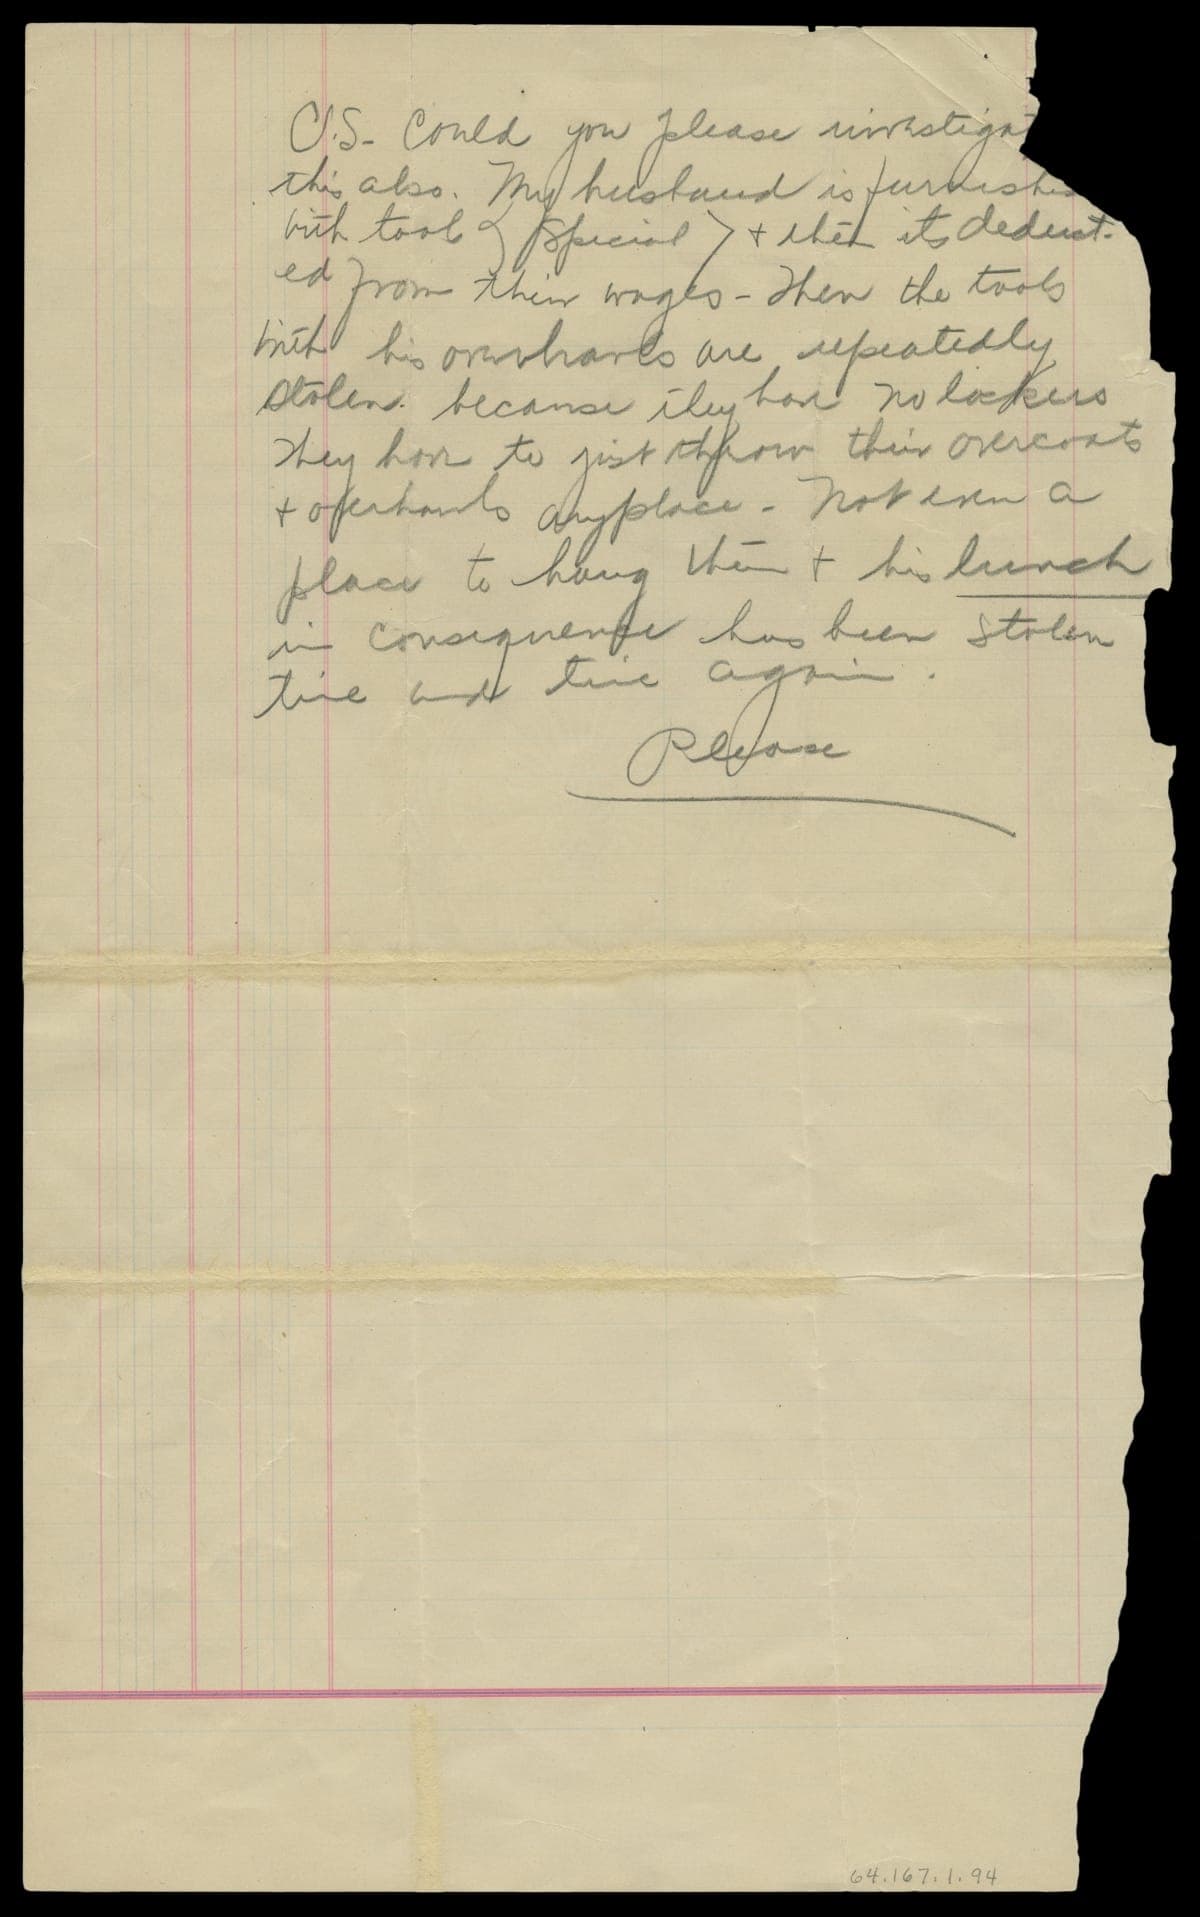 P.S. Could you please investigat
this also. My husband is furnishe
with tools (special) + then its deduct-
ed from their wages - Then the tools
with his overhauls are repeatedly
stolen. because they have no lockers
They have to just throw their overcoats
+ overhauls anyplace - Not even a
place to hang them + his lunch
in consequence has been stolen
time and time again.
Please
64.167.1.94